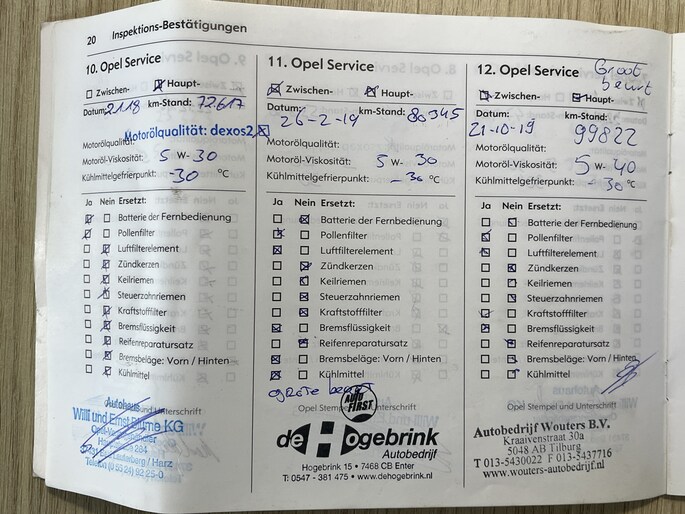 20 Inspektions-Bestätigungen
10. Opel Service
Zwischen- Haupt-
Datum: 2118 km-Stand: 72617
Motorölqualität: dexos2
Motorölqualität:
Motoröl-Viskosität: 5 W- 30
Kühlmittelgefrierpunkt: -30 °C
Ja Nein Ersetzt:
Batterie der Fernbedienung
Pollenfilter
Luftfilterelement
Zündkerzen
Keilriemen
Steuerzahnriemen
Kraftstofffilter
Bremsflüssigkeit
Reifenreparatursatz
Bremsbeläge: Vorn / Hinten
Kühlmittel
Autohaus
Willi und Ernst Blume KG
Telefon (0 55 24) 92 25-0
11. Opel Service
Zwischen- Haupt-
Datum: 26-2-19 km-Stand: 80345
Motorölqualität:
Motoröl-Viskosität: 5 W- 30
Kühlmittelgefrierpunkt: -30 °C
Ja Nein Ersetzt:
Batterie der Fernbedienung
Pollenfilter
Luftfilterelement
Zündkerzen
Keilriemen
Steuerzahnriemen
Kraftstofffilter
Bremsflüssigkeit
Reifenreparatursatz
Bremsbeläge: Vorn / Hinten
Kühlmittel
grote beurt
Opel Stempel und Unterschrift
AUTO FIRST
de Hogebrink
Autobedrijf
Hogebrink 15 • 7468 CB Enter
T: 0547 - 381 475 • www.dehogebrink.nl
12. Opel Service Groot beurt
Zwischen- Haupt-
Datum: km-Stand:
21-10-19 99822
Motorölqualität:
Motoröl-Viskosität: 5 W- 40
Kühlmittelgefrierpunkt: -30 °C
Ja Nein Ersetzt:
Batterie der Fernbedienung
Pollenfilter
Luftfilterelement
Zündkerzen
Keilriemen
Steuerzahnriemen
Kraftstofffilter
Bremsflüssigkeit
Reifenreparatursatz
Bremsbeläge: Vorn / Hinten
Kühlmittel
Opel Stempel und Unterschrift
Autobedrijf Wouters B.V.
Kraaivenstraat 30a
5048 AB Tilburg
T 013-5430022 F 013-5437716
www.wouters-autobedrijf.nl